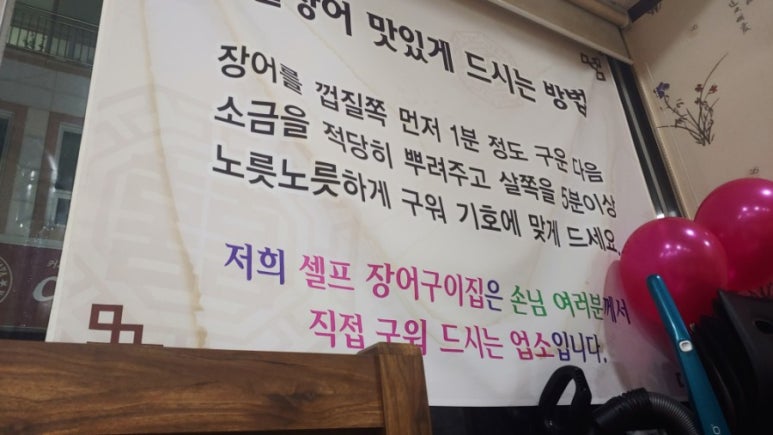 장어 맛있게 드시는 방법
장어를 껍질쪽 먼저 1분 정도 구운 다음
소금을 적당히 뿌려주고 살쪽을 5분이상
노릇노릇하게 구워 기호에 맞게 드세요.
저희 셀프 장어구이집은 손님 여러분께서
직접 구워 드시는 업소입니다.